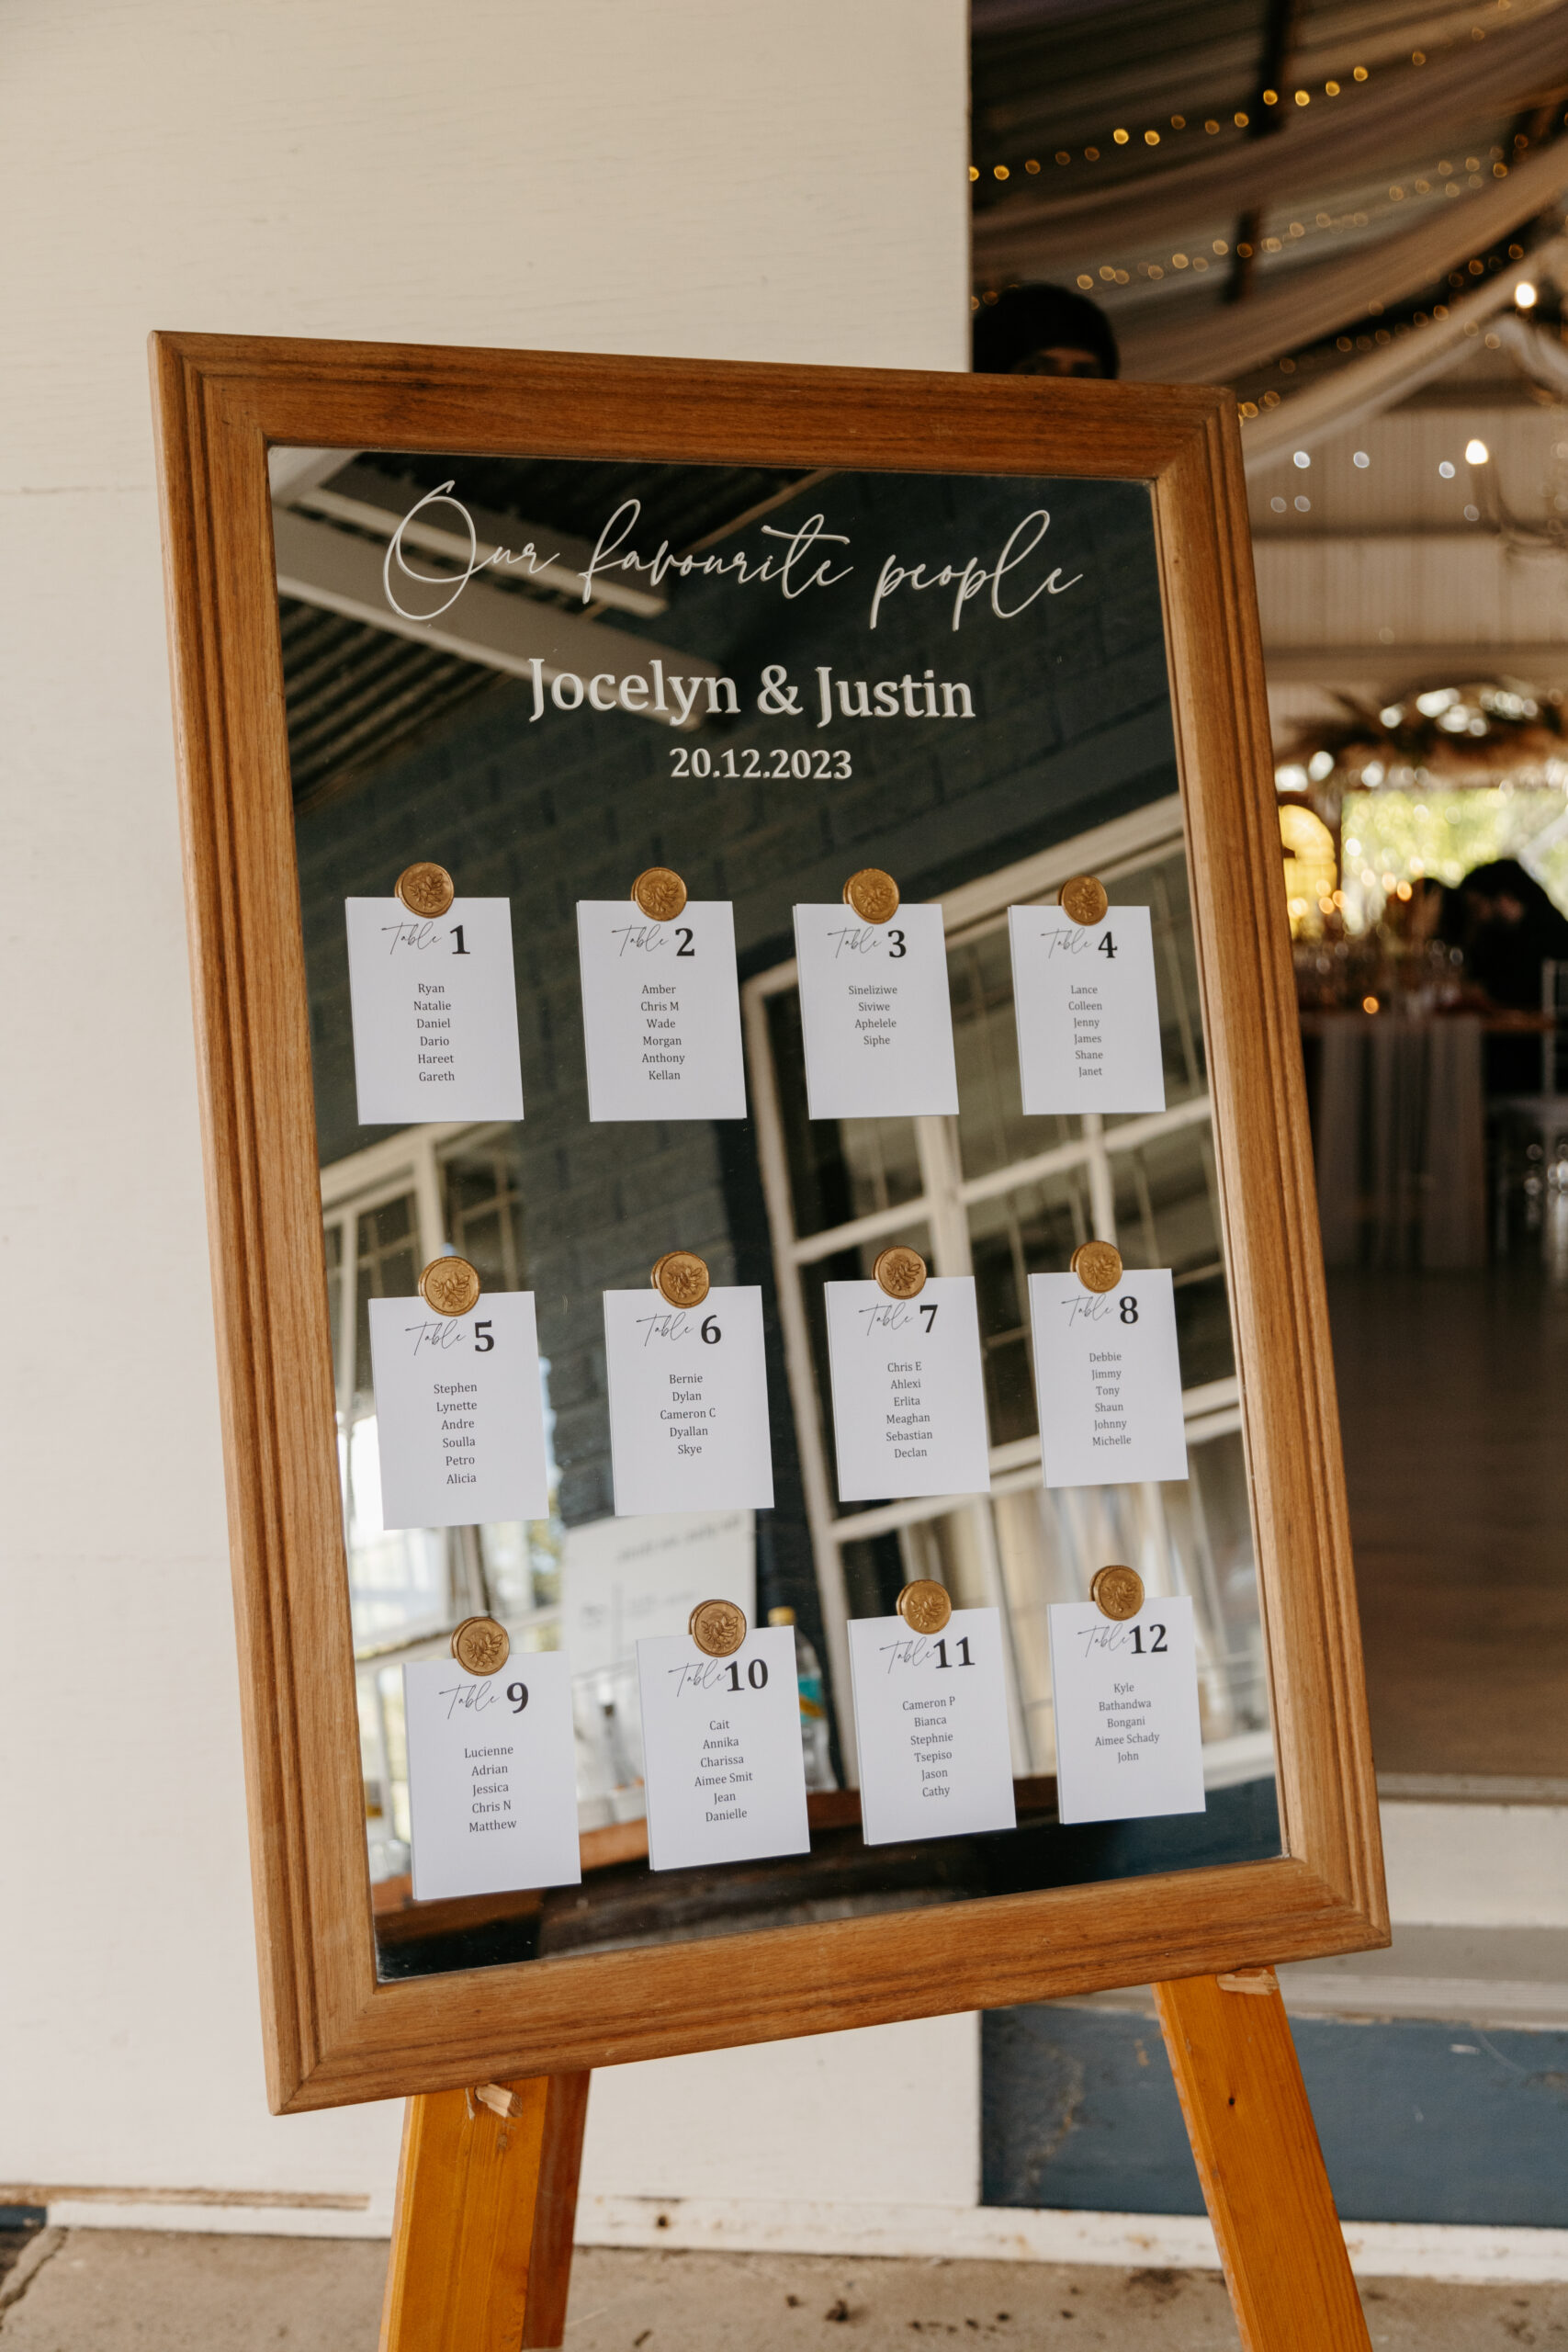 Our favourite people
Jocelyn & Justin
20.12.2023
Table 1
Ryan
Natalie
Daniel
Dario
Hareet
Gareth
Table 2
Amber
Chris M
Wade
Morgan
Anthony
Kellan
Table 3
Sineliziwe
Siviwe
Aphelele
Siphe
Table 4
Lance
Colleen
Jenny
James
Shane
Janet
Table 5
Stephen
Lynette
Andre
Soulla
Petro
Alicia
Table 6
Bernie
Dylan
Cameron C
Dyallan
Skye
Table 7
Chris E
Ahlexi
Erlita
Meaghan
Sebastian
Declan
Table 8
Debbie
Jimmy
Tony
Shaun
Johnny
Michelle
Table 9
Lucienne
Adrian
Jessica
Chris N
Matthew
Table 10
Cait
Annika
Charissa
Aimee Smit
Jean
Danielle
Table 11
Cameron P
Bianca
Stephnie
Tsepiso
Jason
Cathy
Table 12
Kyle
Bathandwa
Bongani
Aimee Schady
John